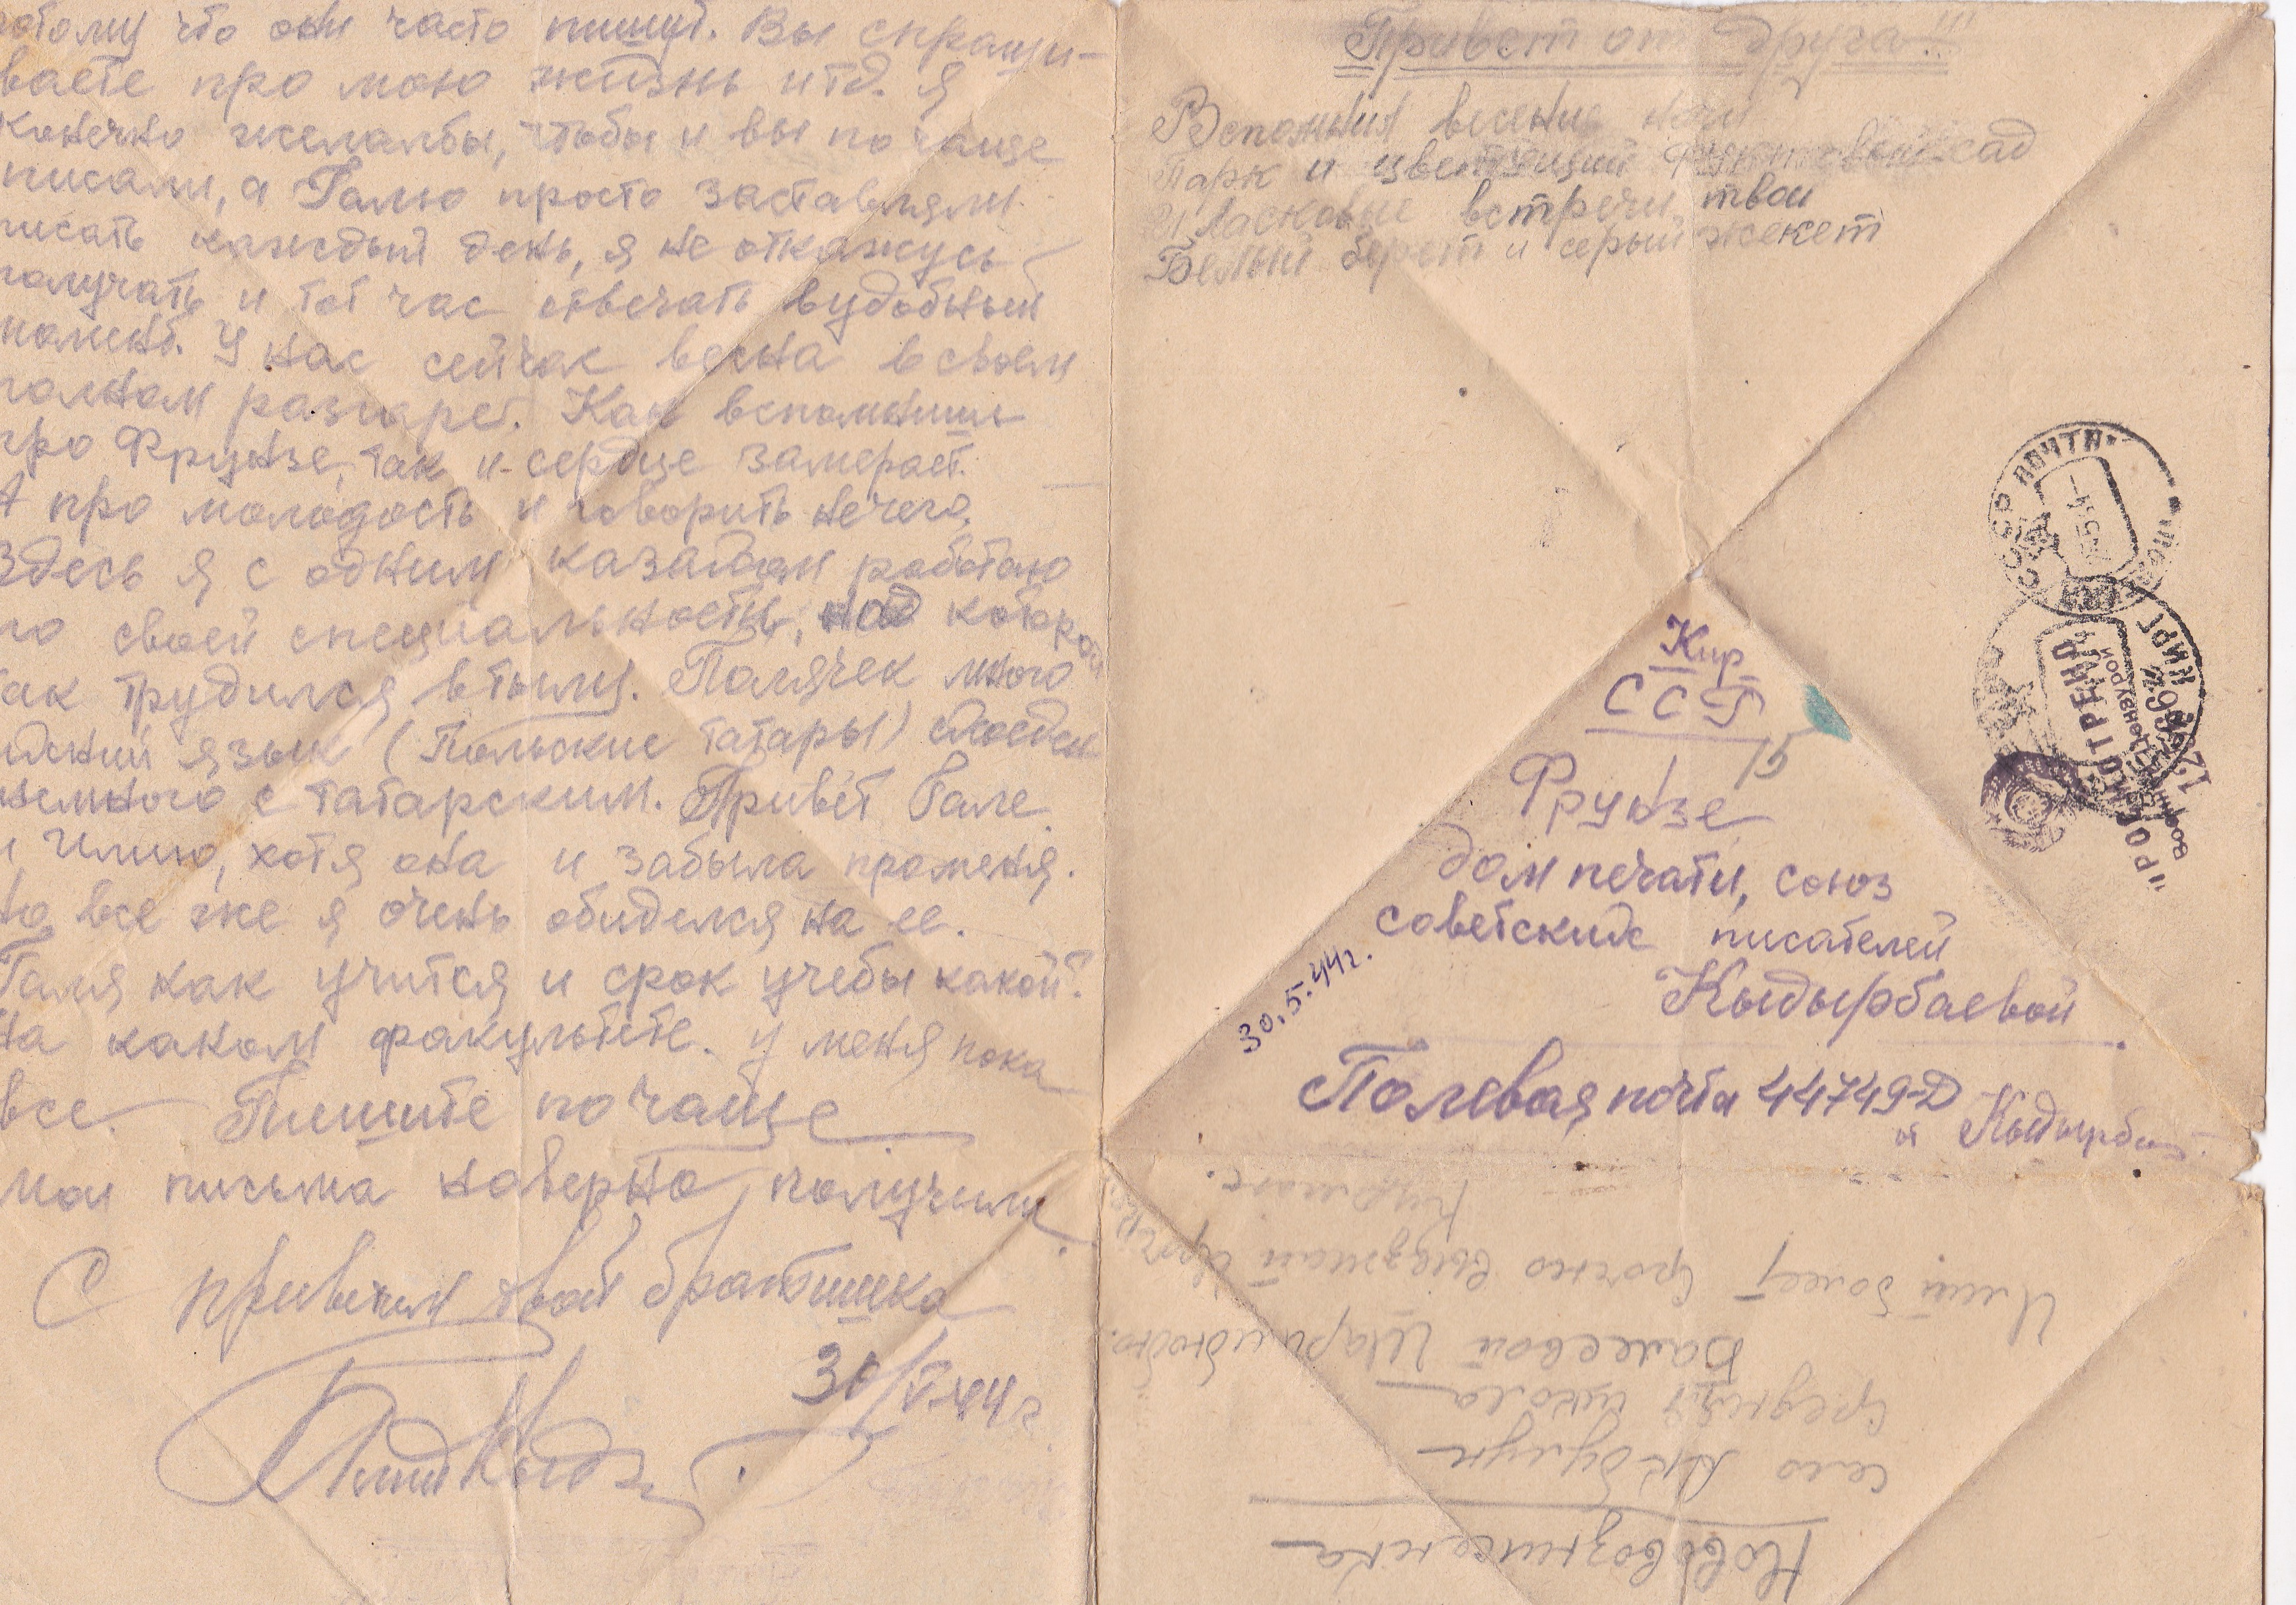 потому что они часто пишут. Вы спраши-
ваете про мою жизнь итд. Я
конечно желалбы, чтобы и вы по чаще
писали, а Галю просто заставляли
писать каждый день, я не откажусь
получать и тот час отвечать вудобный
момент. У нас сейчас весна в своем
полном разгаре. Как вспомнишь
про Фрунзе, так и сердце замерает.
А про молодость и говорить нечего.
Здесь я с одним казахом работаю
по своей специальности, над которой
так трудился втылу. Полячек много
язык (Польские татары)
немного с татарским. Привет Гале
и хотя она и забыла променя.
Но все же я очень обиделся на ее.
Галя как учится и срок учебы какой?
На каком факультете. у меня пока
все. Пишите по чаще
мои письма наверно получили.
С приветом твой братишка
30/V-44 г.
Привет от друга!!!
Вспомнил весение ночи
Парк и цветующий сад
И Ласковые встречи твои
Белый берет и серый жекет
СССР ПОЧТА
ПРОСМОТРЕНО
Военной Цензурой
12966
Кир
ССР
15
Фрунзе
дом печати, союз
советских писателей
Кыдырбаевой
30.5.44г.
Полевая почта 44749-Д
Нововознисенка
село Акбулун
средняя школа
Балеевой
болеет срочно выезжай